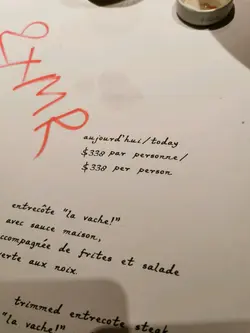 2xMR
aujourd'hui/today
$338 par personne/
$338 per person
entrecôte "la vache!"
avec sauce maison,
ccompagnée de frites et salade
verte aux noix
trimmed entrecote steak
"la vache!"